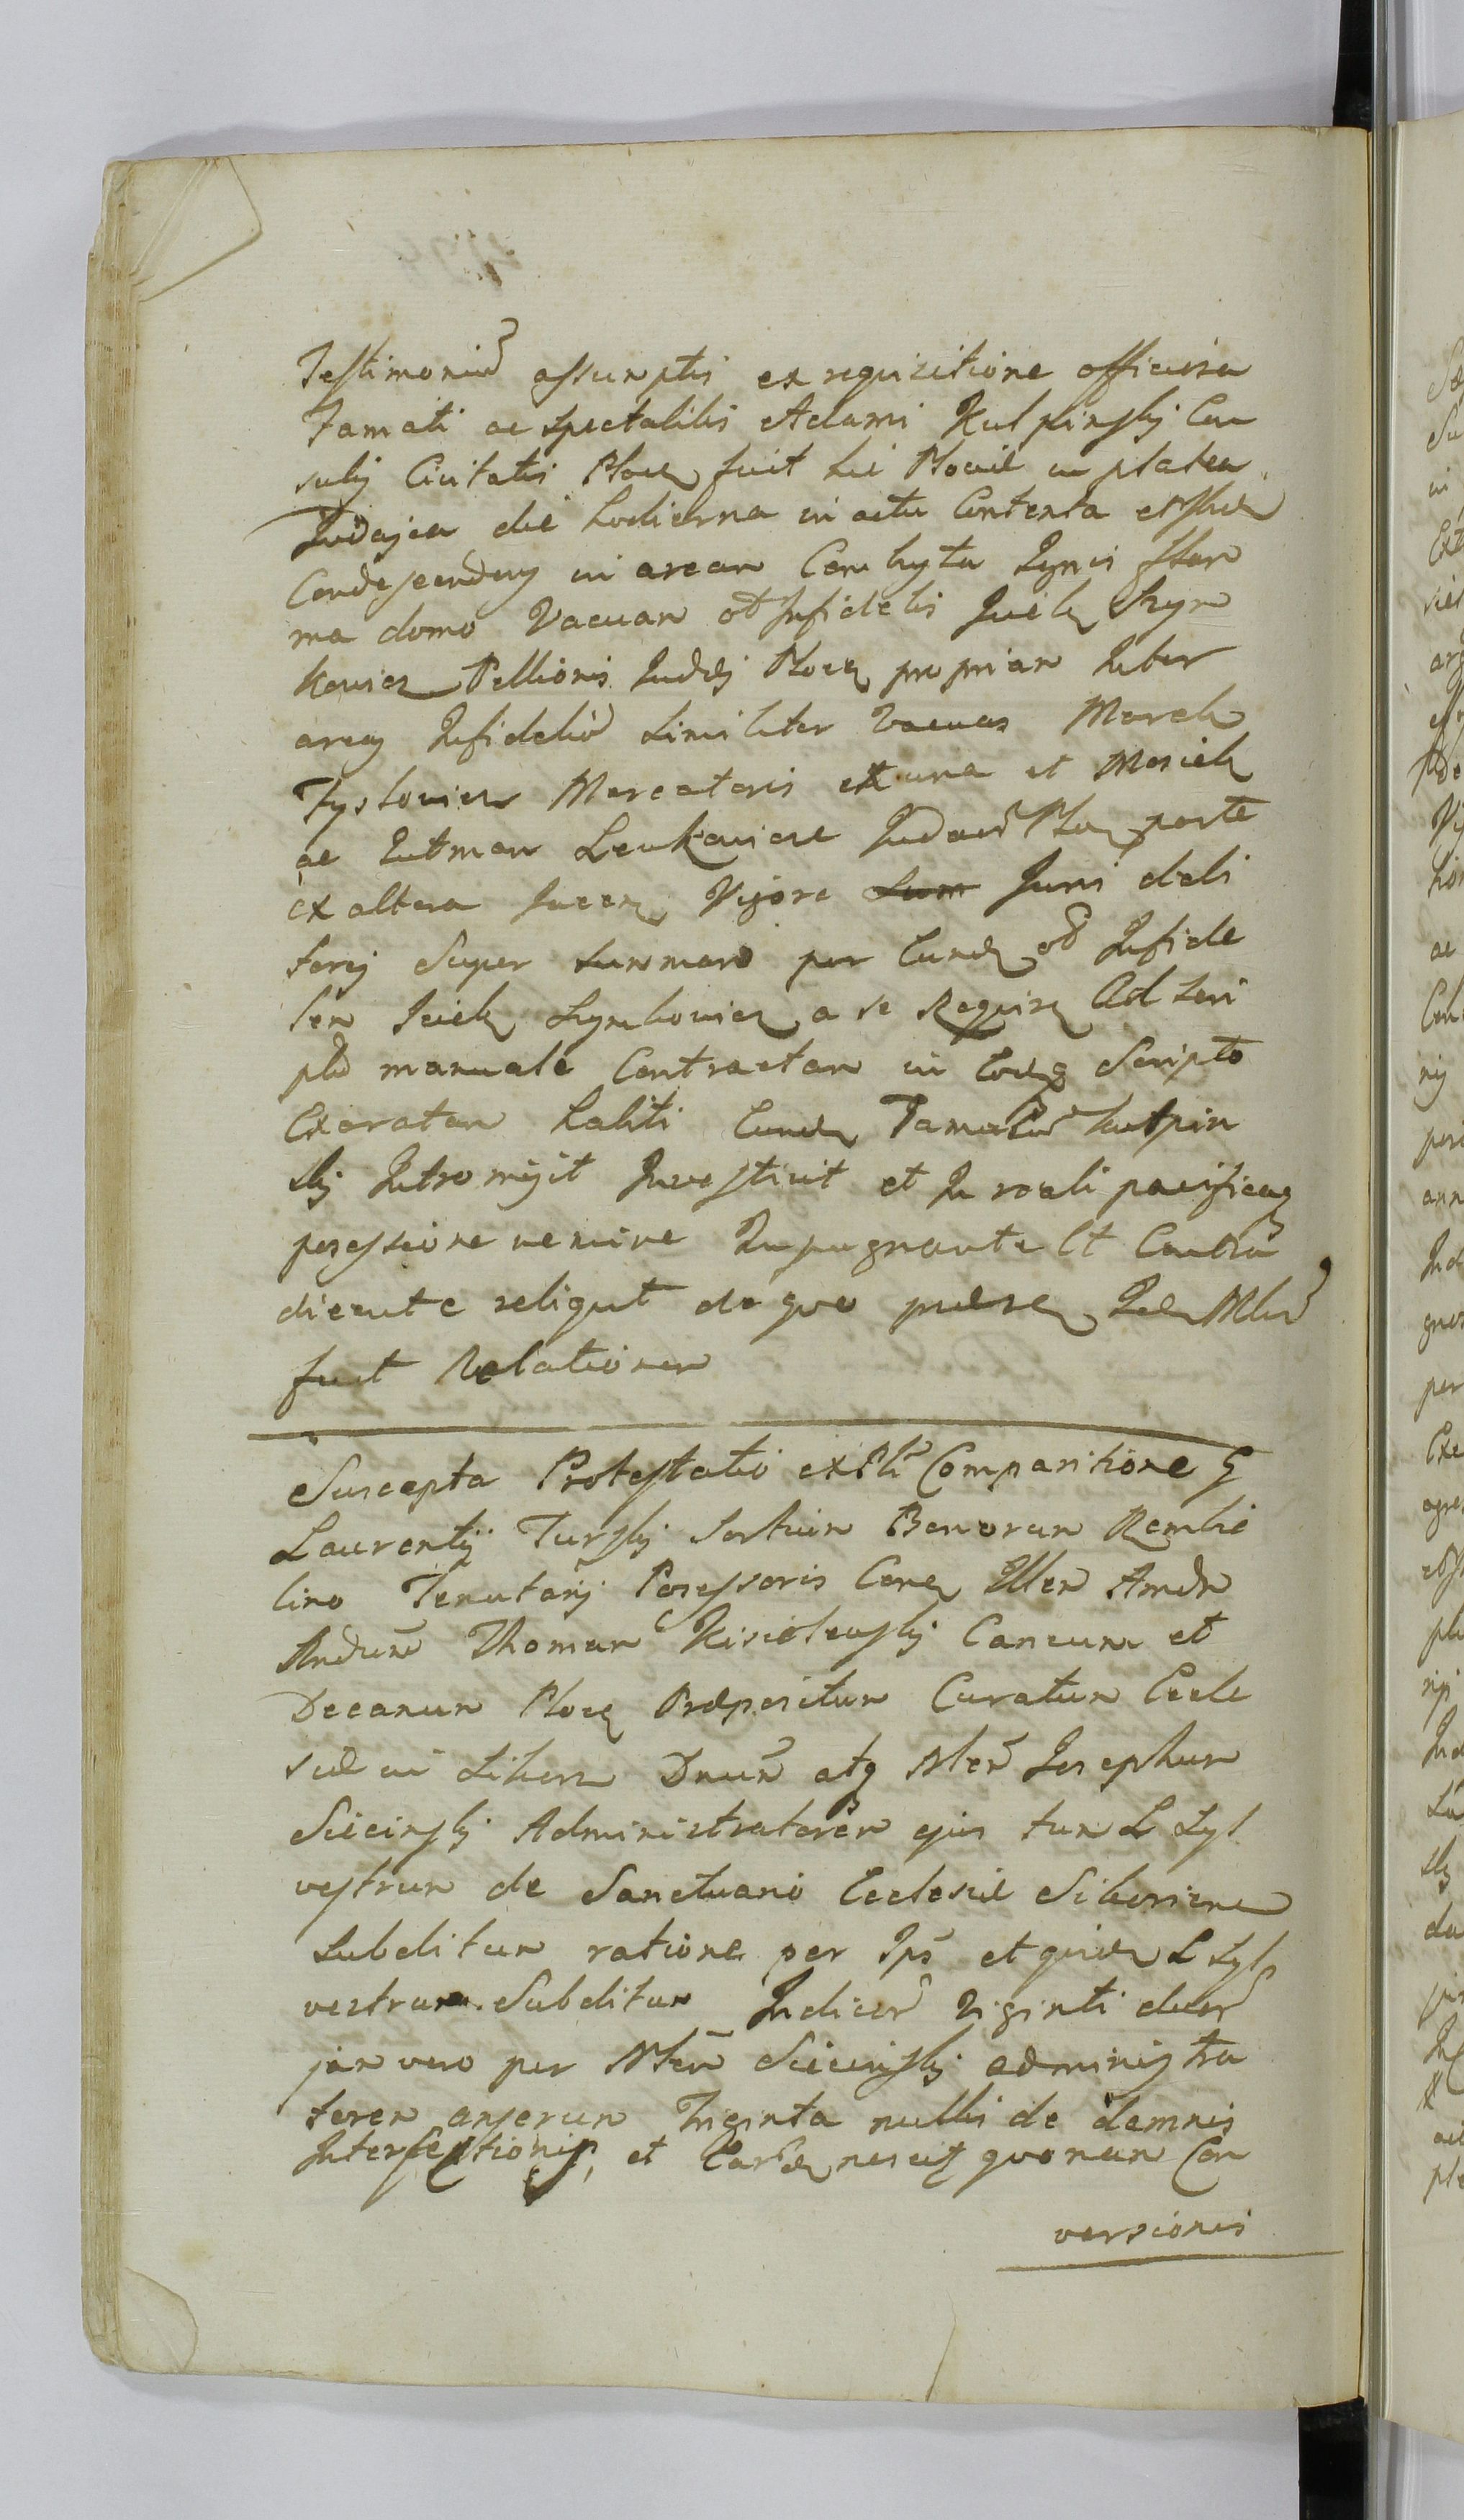 Testimoniu assumptis ex requisitione officiosa
Famati ac spectabilis Adami Kulpinskj Con
sulij Civitatis Plocz fuit hic Plociae in platea
Judajca die hodierna in actu Contenta et ibide
Condescendens in aream Combusta Ignis flam
ma domo Vacuam ob Infidelis Jcieli Szym
kowicz Pellionis Judei Plocz propriam Inter
areas Infideliu Similiter Vacuas Morek
Fyszlowicz Mercatoris ex una et Mosiek
ac Lutman Lewkowicze Judaeoru Plocz parte
ex altera Jacen Vigore Sum Juris deli
torij Super summam per Eund ob Infide
lem Jciek Szymkowicz a se Requisi Ad Scri
ptu manuale Contractam in Eodeq Scripto
Exaratam habiti Eunde Famatu Kulpin
skj Intromisit Investivit et In reali pacificaq
possessione nemine Impugnante et Contra
dicente reliquit de quo praese Idem Mltr
fecit Relationem
Suscepta Protestatio ex Plti Comparitione G
Laurentij Turskj Sortium Bonorum Rembie
lino Tenutarij Possessoris Contra Illem Amdn
Rndum Thomam Kisielewskj Canonum et
Decanum Plocz Praepositum Curatum Eccle
siae in Liberz Dnum atq Nlem Josephum
Siecinskj Administratorem ejus tum L Syl
vestrum de Sanctuario Ecclesiae Siberiene
Subditum ratione per Ips et quidem L Syl
vestrum Subditum Indicor Viginti duor
jam vero per Nlem Siecinskj administra
torem anserum Triginta nullis de damnis
Interfectionis, et Earude nescitq quonam Con
versionis